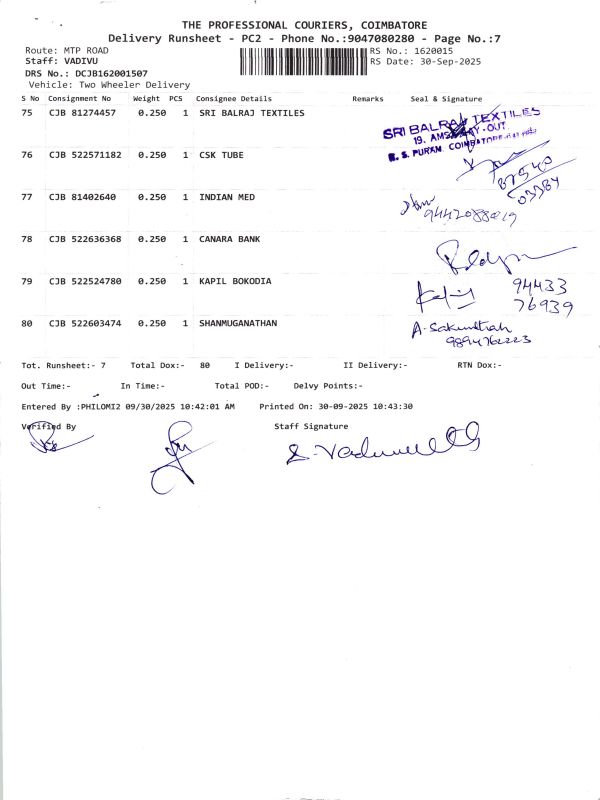 THE PROFESSIONAL COURIERS, COIMBATORE
Delivery Runsheet - PC2 - Phone No.:9047080280 - Page No.:7
Route: MTP ROAD RS No.: 1620015
Staff: VADIVU RS Date: 30-Sep-2025
DRS No.: DCJB162001507
Vehicle: Two Wheeler Delivery
S No Consignment No Weight PCS Consignee Details Remarks Seal & Signature
75 CJB 81274457 0.250 1 SRI BALRAJ TEXTILES
SRI BALRAJ TEXTILES
19, OUT,
R. S. PURAM, COIMBATORE
76 CJB 522571182 0.250 1 CSK TUBE
87540
03784
77 CJB 81402640 0.250 1 INDIAN MED
9442088019
78 CJB 522636368 0.250 1 CANARA BANK
79 CJB 522524780 0.250 1 KAPIL BOKODIA 94433
76939
80 CJB 522603474 0.250 1 SHANMUGANATHAN
9894762223
Tot. Runsheet:- 7 Total Dox:- 80 I Delivery:- II Delivery:- RTN Dox:-
Out Time:- In Time:- Total POD:- Delvy Points:-
Entered By :PHILOMI2 09/30/2025 10:42:01 AM Printed On: 30-09-2025 10:43:30
Verified By Staff Signature